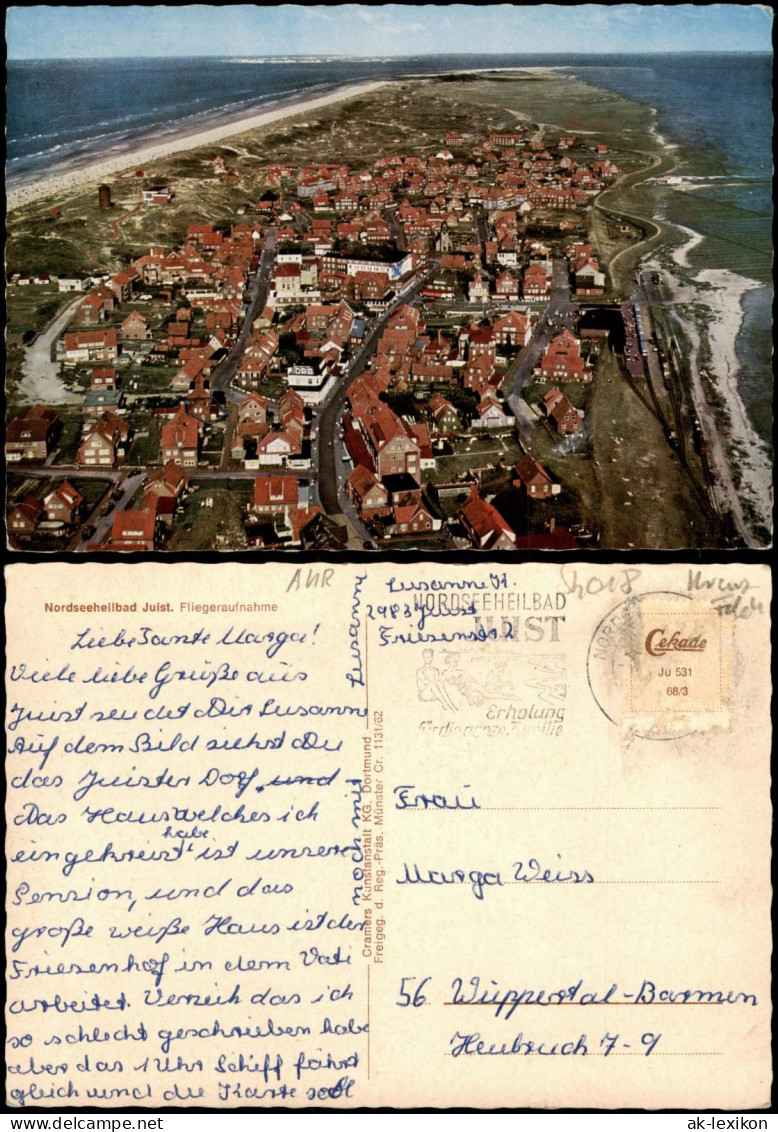 Nordseeheilbad Juist. Fliegeraufnahme
Liebe Tante Marga!
Viele liebe Grüße aus
Juist sendet Dir Susanne
Auf dem Bild siehst Du
das Juister Dorf und
Das Haus welches ich
habe
eingekreist ist unsere
Pension, und das
große weiße Haus ist der
Friesenhof in dem Vati
arbeitet. Verzeih das ich
so schlecht geschrieben habe
aber das 1 Uhr Schiff fährt
gleich und die Karte soll
noch mit
Susanne
Cramers Kunstanstalt KG, Dortmund
Freigeg. d. Reg.-Präs. Münster Cr. 1131/62
Susanne K.
2983 Juist
NORDSEEHEILBAD
JUIST
Erholung
Cekade
Ju 531
68/3
Frau
Marga Weiss
56 Wuppertal-Barmen
Heubruch 7-9
www.ansichtskarten-lexikon.de
ak-lexikon